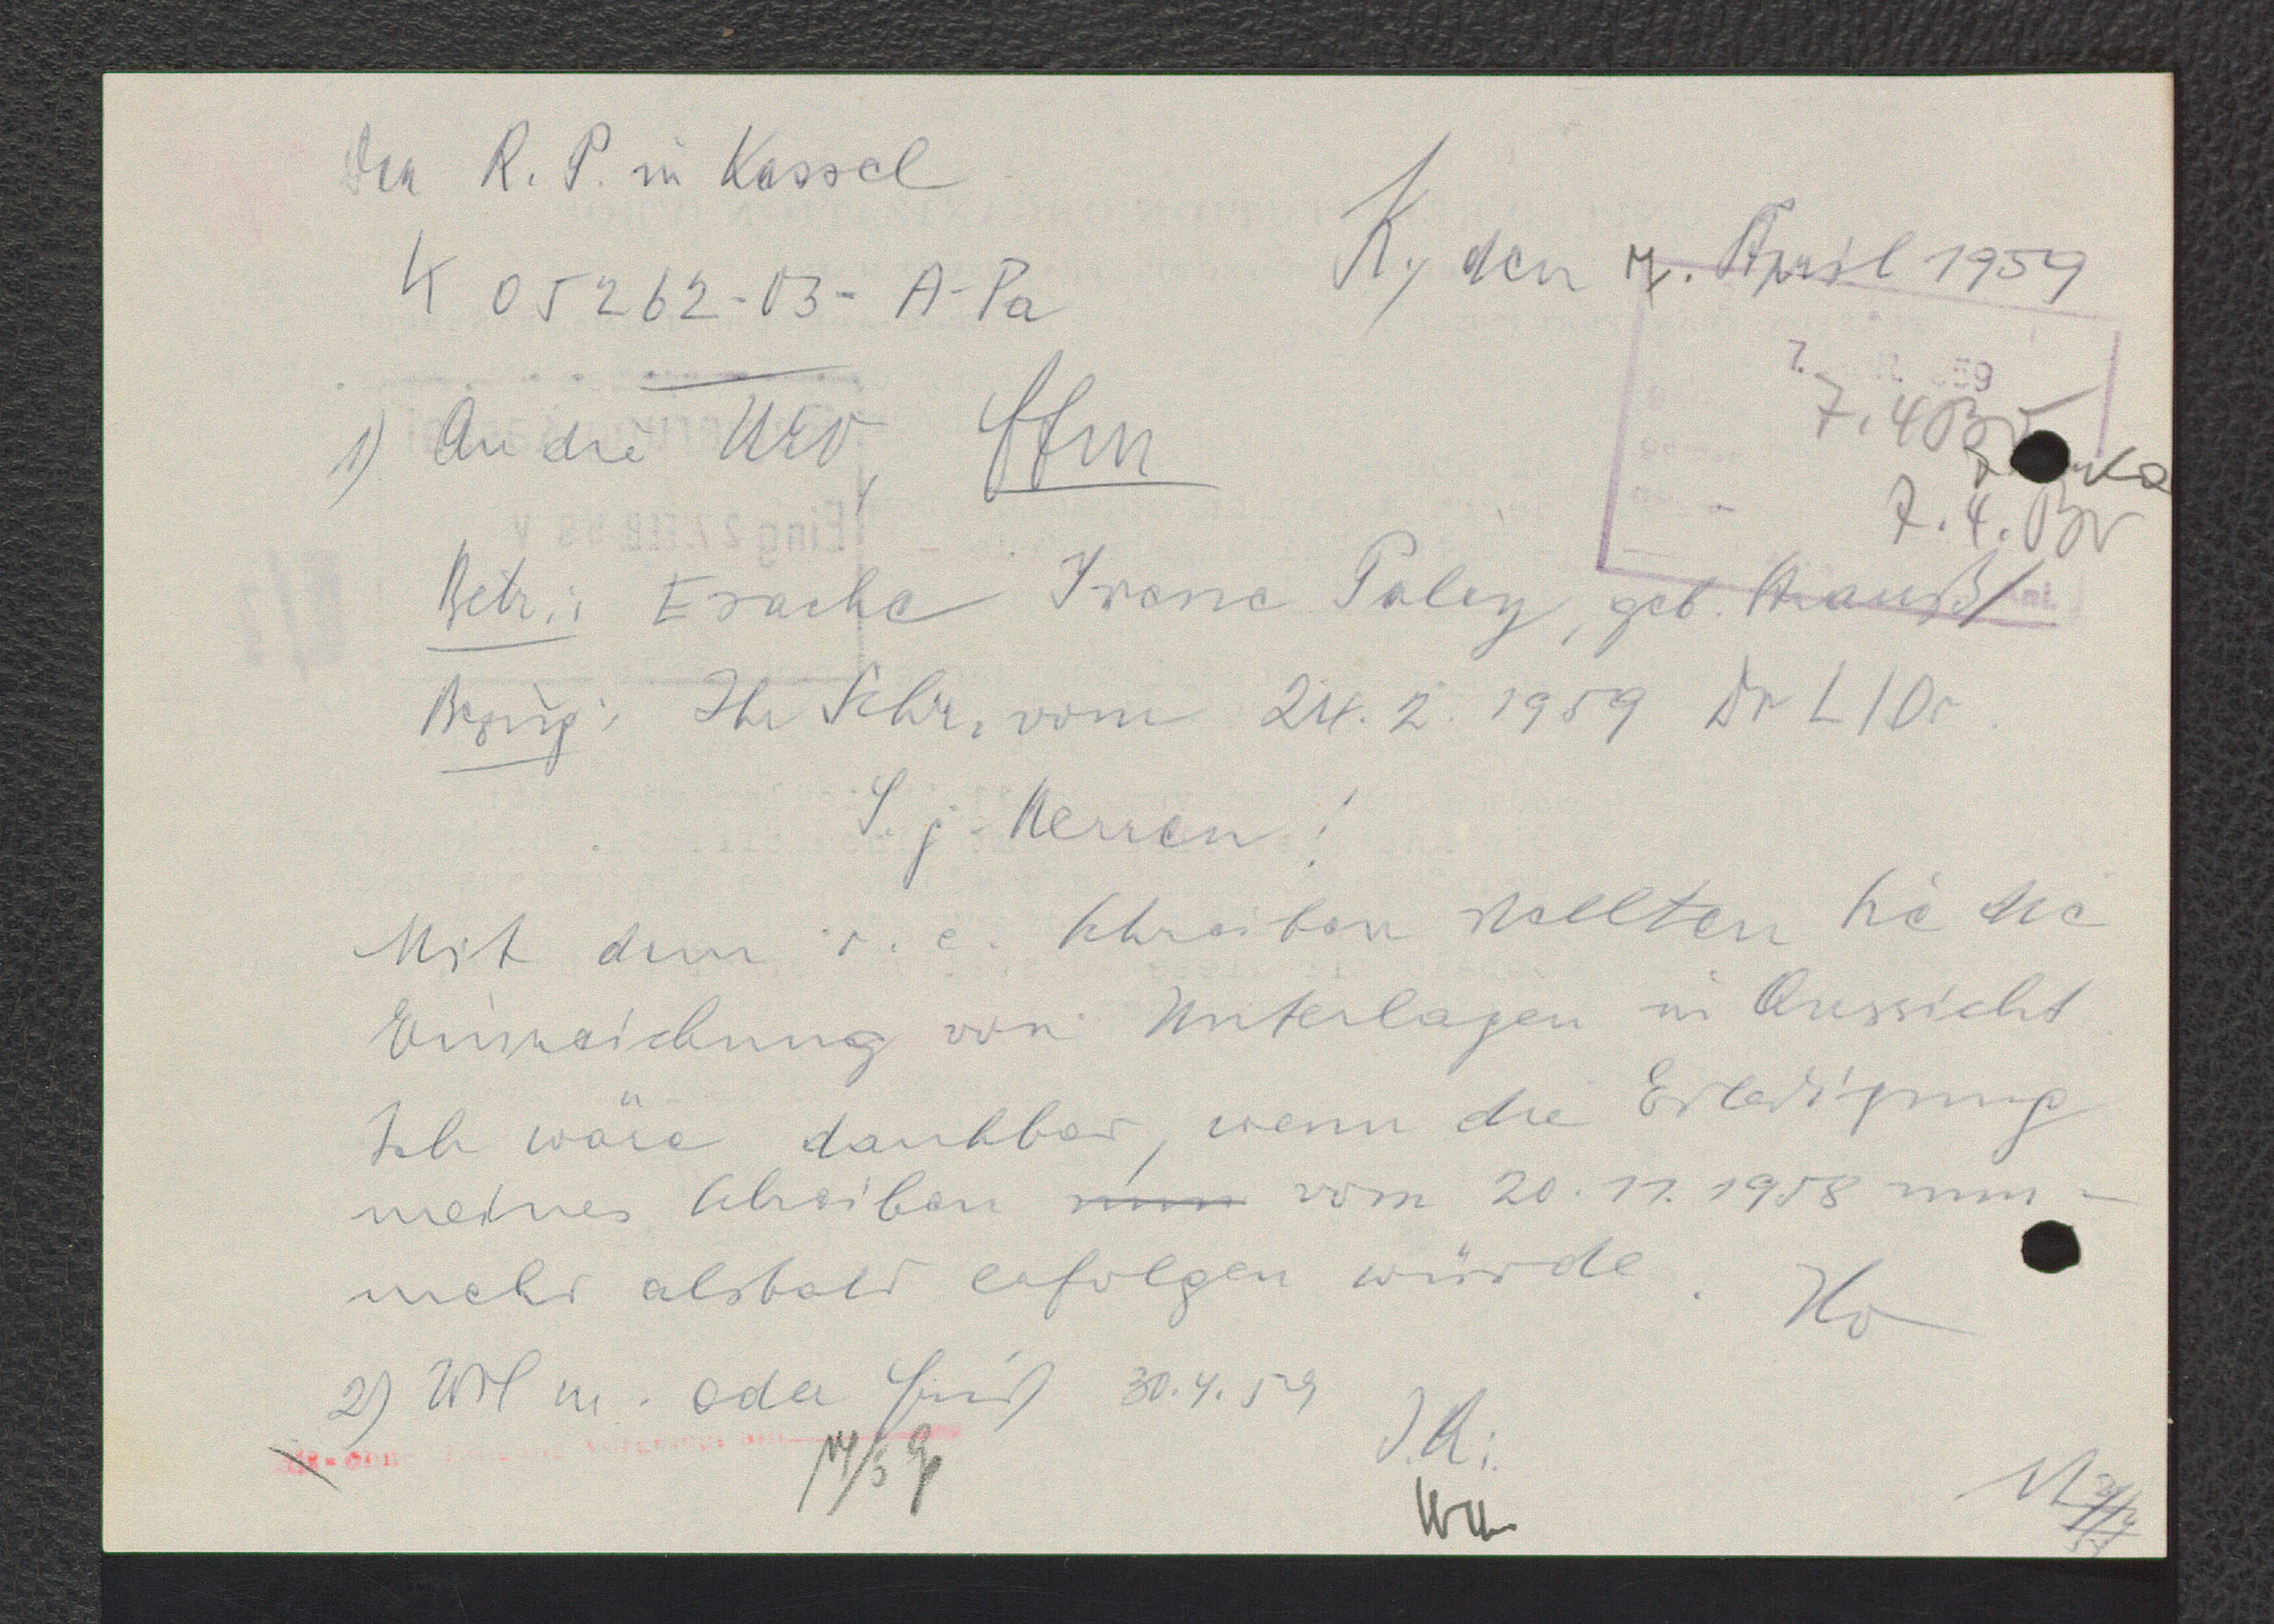 Der R. P. in Kassel
K 05262-03- A-Pa
K, den 7. April 1959
7. 59
7.4 Br
7.4. Br
1) An die URO, Ffm
Betr.: E-sache Irene Paley, geb. Strauß
Bezug: Ihr Schr. vom 24.2.1959 Dr L/Dr.
S. g. Herren!
Mit dem o. e. Schreiben stellten Sie die
Einreichung von Unterlagen in Aussicht
Ich wäre dankbar, wenn die Erledigung
meines Schreiben nun vom 20.11.1958 nun-
mehr alsbald erfolgen würde.
2) Wvl m. oder 30.4.59
I.A.: